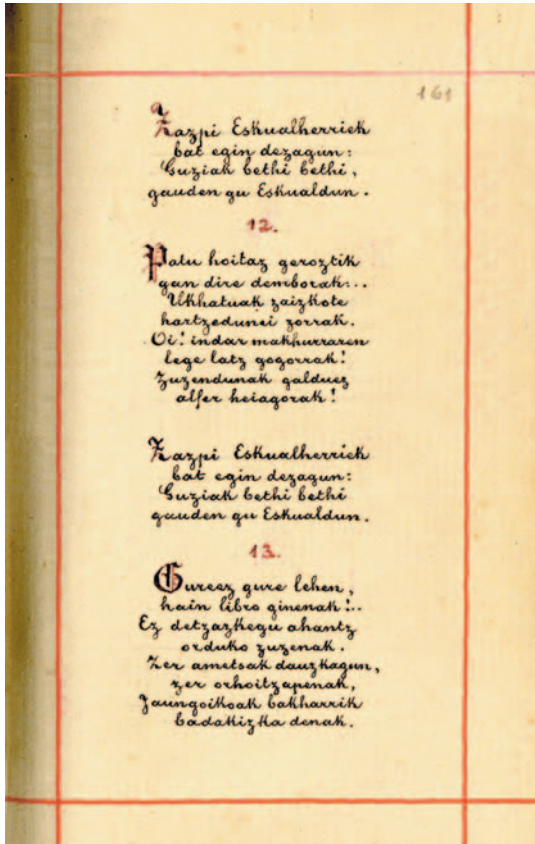 161
Zazpi Eskualherriek
bat egin dezagun:
Guziak bethi bethi,
gauden gu Eskualdun.
12.
Patu hoitaz geroztik
gan dire demborak...
Ukhatuak zaizkote
hartzedunei zorrak.
Oi! indar makhurraren
lege latz gogorrak!
Zuzendunak galduez
alfer heiagorak!
Zazpi Eskualherriek
bat egin dezagun:
Guziak bethi bethi
gauden gu Eskualdun.
13.
Gureez gure lehen,
hain libro ginenak!..
Ez detzazkegu ahantz
orduko zuzenak.
Zer ametsak dauzkagun,
zer orhoitzapenak,
Jaungoikoak bakharrik
badakizka denak.